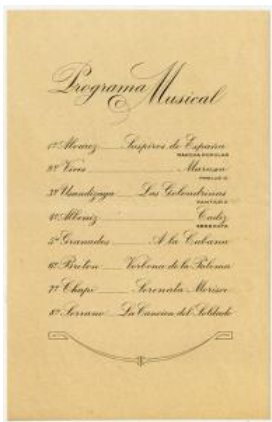 Programa Musical
1º Alvarez Suspiros de España
MARCHA POPULAR
2º Vives Maruxa
PRELUDIO
3º Usandizaga Las Golondrinas
FANTASIA
4º Albeniz Cadiz
SERENATA
5º Granados A la Cubana
6º Breton Verbena de la Paloma
7º Chapi Serenata Morisca
8º Serrano La Cancion del Soldado